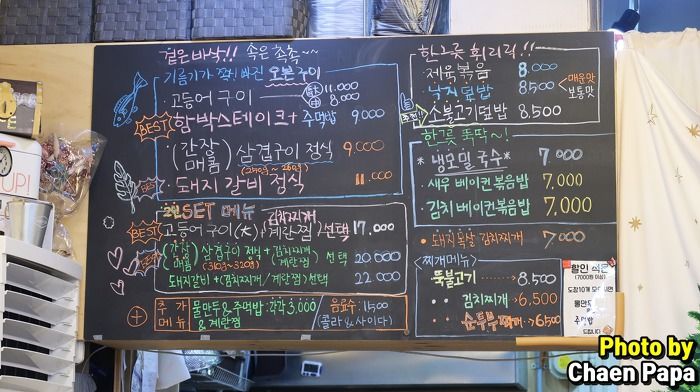 겉은 바삭!! 속은 촉촉~~
기름기가 쫙! 빠진 오븐구이
· 고등어 구이 大 11.000
中 8.000
BEST 함박스테이크 + 주먹밥 9.000
· (간장 매콤) 삼겹구이 정식 9.000
(250g ~ 260g)
BEST · 돼지 갈비 정식 11.000
2인 SET 메뉴
BEST 고등어구이(大) + 김치찌개 계란찜 선택 17.000
BEST (간장 매콤) 삼겹구이 정식 + 김치찌개 계란찜 선택 20.000
(310g~320g)
돼지갈비 + (김치찌개 / 계란찜) 선택 22.000
+ 추가 메뉴 물만두 & 주먹밥 : 각각 3,000 & 계란찜
음료수 : 1500
(콜라 & 사이다)
한그릇 휘리릭!!
· 제육볶음 8.000
· 낙지덮밥 8500
매운맛
보통맛
추천 소불고기덮밥 8.500
한그릇 뚝딱~!
* 냉모밀국수 * 7.000
· 새우 베이컨볶음밥 7,000
· 김치 베이컨볶음밥 7,000
· 돼지목살 김치찌개 7000
<찌개메뉴>
뚝불고기 → 8.500
김치찌개 → 6,500
순두부찌개 → 6500
할인 쿠폰
(7000원 이상)
도장10개
물만두
주먹밥
드립니다
UP!
Photo by
Chaen Papa